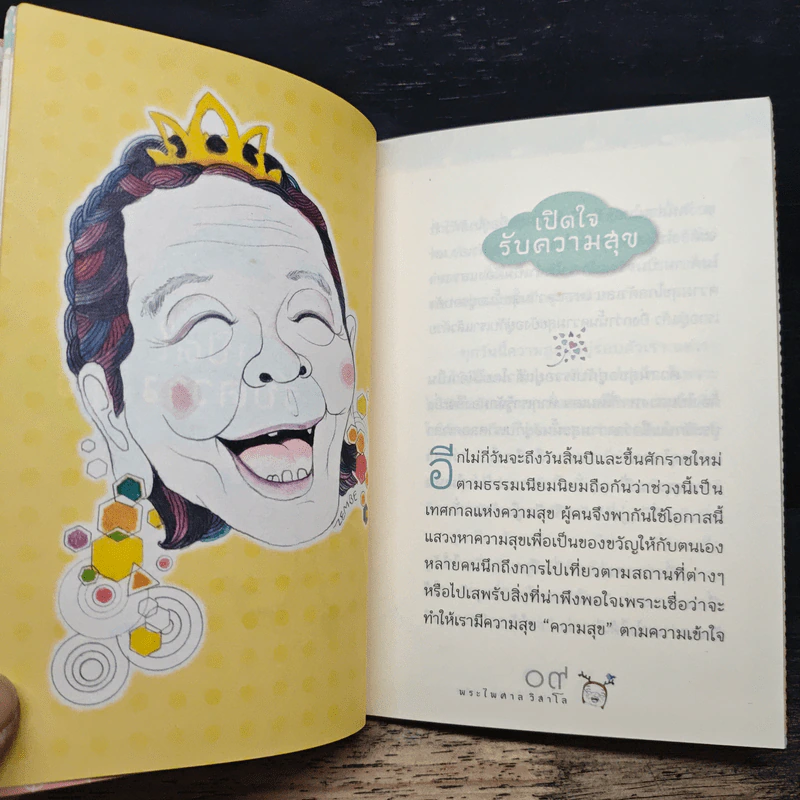 ZEMBE
เปิดใจ
รับความสุข
อีกไม่กี่วันจะถึงวันสิ้นปีและขึ้นศักราชใหม่
ตามธรรมเนียมนิยมถือกันว่าช่วงนี้เป็น
เทศกาลแห่งความสุข ผู้คนจึงพากันใช้โอกาสนี้
แสวงหาความสุขเพื่อเป็นของขวัญให้กับตนเอง
หลายคนนึกถึงการไปเที่ยวตามสถานที่ต่างๆ
หรือไปเสพรับสิ่งที่น่าพึงพอใจเพราะเชื่อว่าจะ
ทำให้เรามีความสุข “ความสุข” ตามความเข้าใจ
๐๙
พระไพศาล วิสาโล